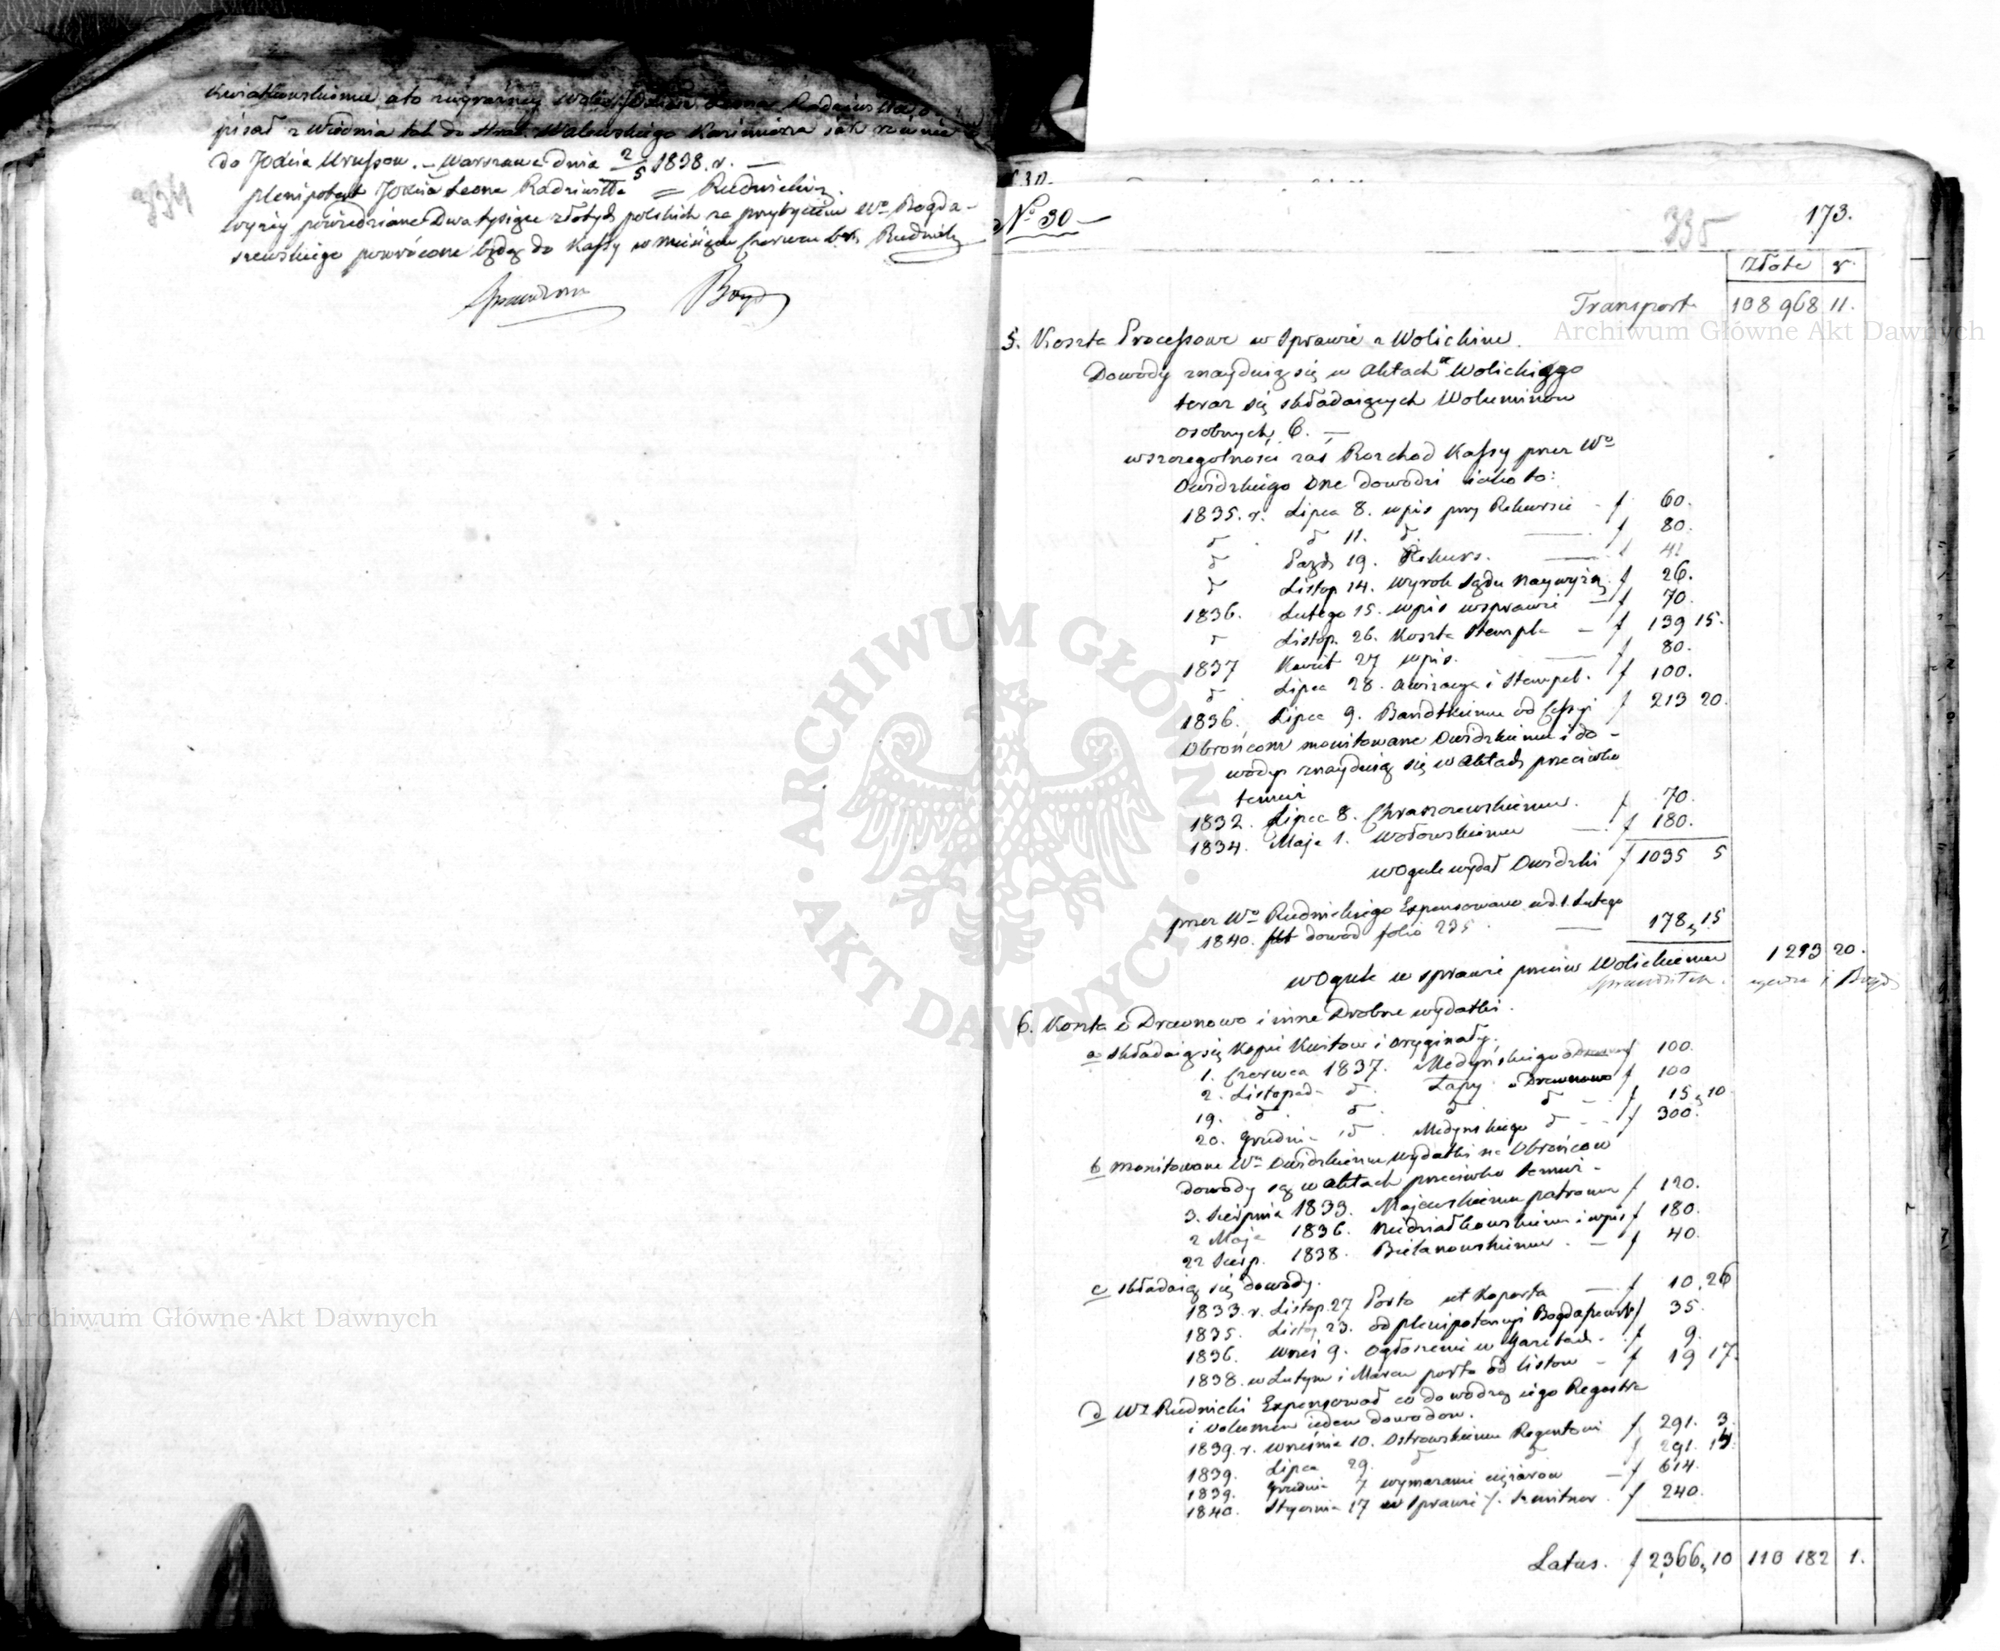 Kwiatkowskiemu a to
pisał z Wiednia tak do Hrab. Walewskiego Kazimierza jak również
do Józefa Uruskego. – Warszawa dnia 2/5 1838. r. —
334
plenipotent Xcia Leona Radziwiłła = Rudnicki
wyżey powiedziane Dwa tysiące złotych polskich za przybyciem Wo Bogda-
szewskiego powrócone będą do Kassy w miesiącu Czerwcu b. r. Rudnicki
N° 30 —
335
173.
Złote gr.
Transport 108 968 11.
Archiwum Główne Akt Dawnych
5. Koszta Processowe w Sprawie z Wolickim.
Dowody znayduią się w Aktach Wolickiego
teraz się składaiących Woluminów
osobnych 6. —
w szczególności zaś Rozchod Kassy przez Wo
Owidzkiego Dne dowodzi iako to:
1835. r. Lipca 8. wpis przy Rekursie - f 60.
" " 11. " — f 80.
" Pazdz 19. Rekurs. — f 42
" Listop 14. Wyrok Sądu Naywyż. f 26.
1836. Lutego 15. wpis w sprawie — f 70.
" Listop. 26. Koszta Stempla — f 139 15.
1837 Kwiet 27 wpis. — f 80.
" Lipca 28. Awizacya i Stempel. f 100.
1836. Lipca 9. Bandtkiemu od Cessyi f 213 20.
Obrońcom monitowane Owidzkiemu i do-
wody znayduią się w Aktach przeciwko
temuż
1832. Lipca 8. Chraszczewskiemu. f 70.
1834. Maja 1. Wołowskiemu — f 180.
w Ogule wydał Owidzki f 1035 5
przez Wo Rudnickiego Expensowano od 1. Lutego
1840. dowod folio 235. — 178 15
w Ogule w sprawie przeciw Wolickiemu 1 213 20.
6. Koszta o Drewnowo i inne Drobne wydatki.
a składaią się Kopie Kwitow i oryginały.
1. Czerwca 1837. Medyńskiego o Drewnowo f 100.
2. Listopada " Łapy o Drewnowo f 100
19. " " " " - f 15 10
20. Grudnia " Medynskiego " - f 300.
b monitowane Wu Owidzkiemu wydatki na Obrońcow
dowody są w aktach przeciwko temuż -
3. Sierpnia 1833. Majewskiemu patronu f 120.
2 Maja 1836. Niedziałkowskiemu i wpis f 180.
22 Sierp. 1838. Bielanowskiemu. — f 40.
c składaią się dowody.
1833. r. Listop. 27 Porto — f 10 26
1835. Listop 23. od plenipotencyi Bogdaszews. f 35.
1836. Wrześ 9. Ogłoszenie w Gazetach. - f 9.
1838. w Lutym i Marcu porto od listow - f 19 17.
d Wy Rudnicki Expensował co dowodzą iego Regestra
i volumen ieden dowodow.
1839. r. września 10. Ostrowskiemu Regentowi f 291. 3.
1839. Lipca 29. " " f 291. 14.
1839. Grudnia 7 wymazanie ciężarow — f 614.
1840. Stycznia 17 w Sprawie f 240.
Latus. f 2366 10 110 182 1.
Archiwum Główne Akt Dawnych
ARCHIWUM GŁÓWNE · AKT DAWNYCH ·